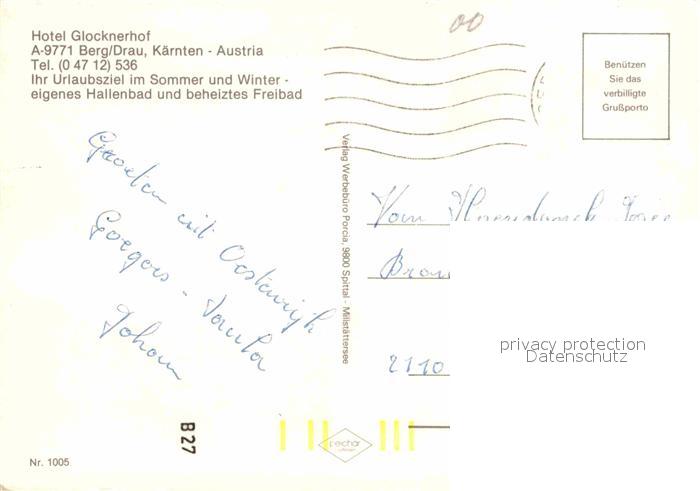 Hotel Glocknerhof
A-9771 Berg/Drau, Kärnten - Austria
Tel. (0 47 12) 536
Ihr Urlaubsziel im Sommer und Winter -
eigenes Hallenbad und beheiztes Freibad
00
Benützen
Sie das
verbilligte
Grußporto
Groeten uit Oostenrijk
Johan
Verlag Werbebüro Porcia, 9800 Spittal - Millstättersee
2110
privacy protection
Datenschutz
B27
Nr. 1005